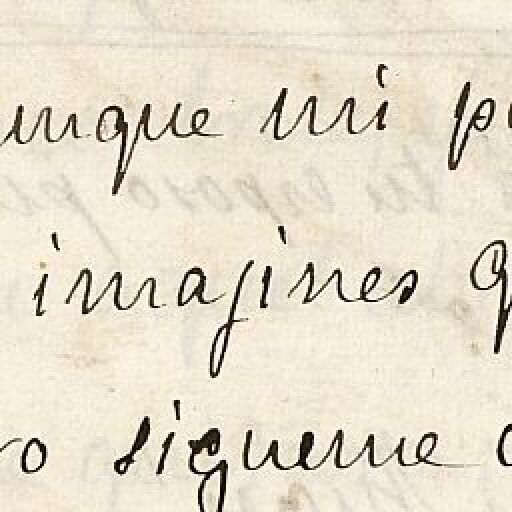 unque mi p
imagines q
ro sigueme